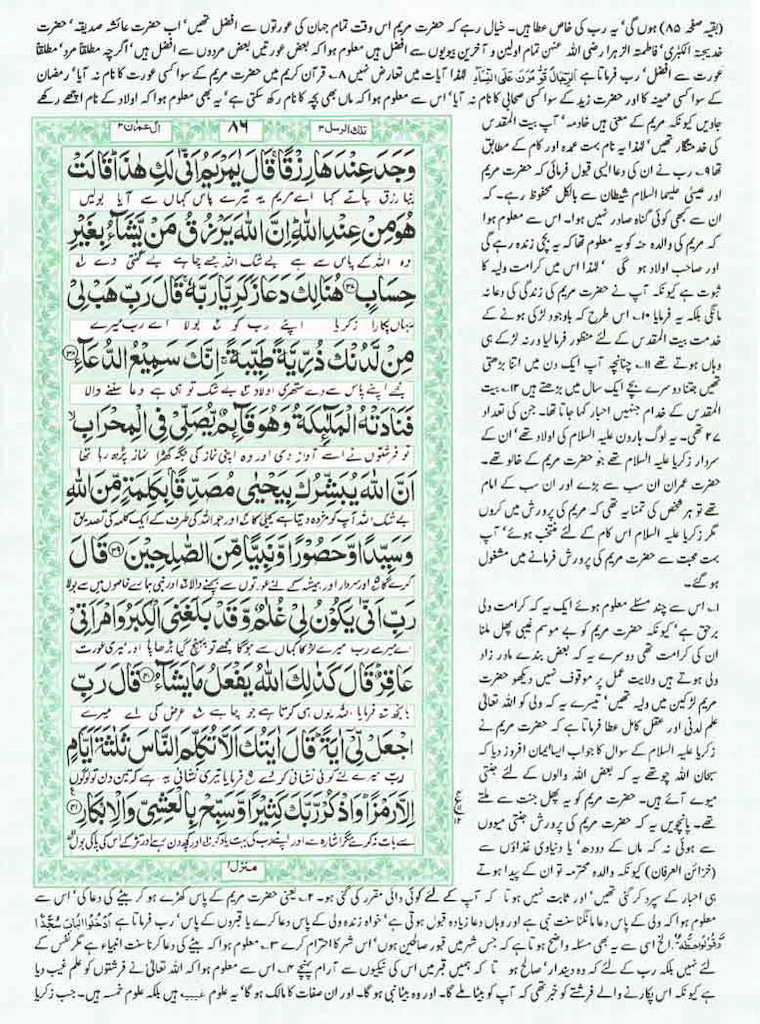 (بقیہ صفحہ ۸۵) ہوں گی' یہ رب کی خاص عطا ہیں۔ خیال رہے کہ حضرت مریم اس وقت تمام جہان کی عورتوں سے افضل تھیں' اب حضرت عائشہ صدیقہ' حضرت
خدیجۃ الکبریٰ' فاطمتہ الزہرا رضی اللہ عنہن تمام اولین و آخرین بیویوں سے افضل ہیں معلوم ہوا کہ بعض عورتیں بعض مردوں سے افضل ہیں' اگرچہ مطلقاً مرد' مطلقاً
عورت سے افضل' رب فرماتا ہے اَلرِّجَالُ قَوّٰمُوْنَ عَلَى النِّسَآءِ لہٰذا آیات میں تعارض نہیں ۸۔ قرآن کریم میں حضرت مریم کے سوا کسی عورت کا نام نہ آیا' رمضان
کے سوا کسی مہینہ کا اور حضرت زید کے سوا کسی صحابی کا نام نہ آیا' اس سے معلوم ہوا کہ ماں بھی بچہ کا نام رکھ سکتی ہے' یہ بھی معلوم ہوا کہ اولاد کے نام اچھے رکھے
جاویں کیونکہ مریم کے معنی ہیں خادمہ' آپ بیت المقدس
کی خدمتگار تھیں' لہٰذا یہ نام بہت عمدہ اور کام کے مطابق
تھا ۹۔ رب نے ان کی دعا ایسی قبول فرمائی کہ حضرت مریم
اور عیسیٰ علیہما السلام شیطان سے بالکل محفوظ رہے۔ کہ
ان سے کبھی کوئی گناہ صادر نہیں ہوا۔ اس سے معلوم ہوا
کہ مریم کی والدہ حنہ کو یہ معلوم تھا کہ یہ بچی زندہ رہے گی
اور صاحب اولاد ہو گی' لہٰذا اس میں کرامت ولیہ کا
ثبوت ہے کیونکہ آپ نے حضرت مریم کی زندگی کی دعا نہ
مانگی بلکہ یہ فرمایا ۱۰۔ اس طرح کہ باوجود لڑکی ہونے کے
خدمت بیت المقدس کے لئے منظور فرمالیا ورنہ لڑکے ہی
وہاں ہوتے تھے ۱۱۔ چنانچہ آپ ایک دن میں اتنا بڑھتی
تھیں جتنا دوسرے بچے ایک سال میں بڑھتے ہیں ۱۲۔ بیت
المقدس کے خدام جنہیں احبار کہا جاتا تھا۔ جن کی تعداد
۲۷ تھی۔ یہ لوگ ہارون علیہ السلام کی اولاد تھے' ان کے
سردار زکریا علیہ السلام تھے جو حضرت مریم کے خالو تھے۔
حضرت عمران ان سب سے بڑے اور ان سب کے امام
تھے تو ہر شخص کی تمنا یہ تھی کہ مریم کی پرورش میں کروں
مگر زکریا علیہ السلام اس کام کے لئے منتخب ہوئے' آپ
بہت محبت سے حضرت مریم کی پرورش فرمانے میں مشغول
ہو گئے۔
۱۔ اس سے چند مسئلے معلوم ہوئے ایک یہ کہ کرامت ولی
برحق ہے' کیونکہ حضرت مریم کو بے موسم غیبی پھل ملنا
ان کی کرامت تھی دوسرے یہ کہ بعض بندے مادر زاد
ولی ہوتے ہیں ولایت عمل پر موقوف نہیں دیکھو حضرت
مریم لڑکپن میں ولیہ تھیں' تیسرے یہ کہ ولی کو اللہ تعالٰی
علم لدنی اور عقل کامل عطا فرماتا ہے کہ حضرت مریم نے
زکریا علیہ السلام کے سوال کا جواب ایسا ایمان افروز دیا کہ
سبحان اللہ چوتھے یہ کہ بعض اللہ والوں کے لئے جنتی
میوے آئے ہیں۔ حضرت مریم کو یہ پھل جنت سے ملتے
تھے۔ پانچویں یہ کہ حضرت مریم کی پرورش جنتی میووں
سے ہوئی نہ کہ ماں کے دودھ' یا دنیاوی غذاؤں سے
(خزائن العرفان) کیونکہ والدہ محترمہ تو ان کے پیدا ہوتے
تلك الرسل ۳
۸۶
ال عمران ۳
وَجَدَ عِنْدَهَا رِزْقًا قَالَ يٰمَرْيَمُ اَنّٰى لَكِ هٰذَا قَالَتْ
نیا رزق پاتے کہا اے مریم یہ تیرے پاس کہاں سے آیا بولیں
هُوَ مِنْ عِنْدِ اللّٰهِ اِنَّ اللّٰهَ يَرْزُقُ مَنْ يَّشَآءُ بِغَيْرِ
وہ اللہ کے پاس سے ہے بے شک اللہ جسے چاہے بے گنتی دے
حِسَابٍ ﴿۳۷﴾ هُنَالِكَ دَعَا زَكَرِيَّا رَبَّهٗ قَالَ رَبِّ هَبْ لِيْ
یہاں پکارا زکریا اپنے رب کو بولا اے رب میرے
مِنْ لَّدُنْكَ ذُرِّيَّةً طَيِّبَةً اِنَّكَ سَمِيْعُ الدُّعَآءِ ﴿۳۸﴾
مجھے اپنے پاس سے دے ستھری اولاد بے شک تو ہی ہے دعا سننے والا
فَنَادَتْهُ الْمَلٰٓئِكَةُ وَهُوَ قَآئِمٌ يُّصَلِّيْ فِي الْمِحْرَابِ
تو فرشتوں نے اسے آواز دی اور وہ اپنی نماز کی جگہ کھڑا نماز پڑھ رہا تھا
اَنَّ اللّٰهَ يُبَشِّرُكَ بِيَحْيٰى مُصَدِّقًۢا بِكَلِمَةٍ مِّنَ اللّٰهِ
بے شک اللہ آپ کو مژدہ دیتا ہے یحیٰی کا جو اللہ کی طرف کے ایک کلمہ کی تصدیق
وَسَيِّدًا وَّحَصُوْرًا وَّنَبِيًّا مِّنَ الصّٰلِحِيْنَ ﴿۳۹﴾ قَالَ
کرے گا اور سردار اور ہمیشہ کے لئے عورتوں سے بچنے والا اور نبی ہمارے خاصوں میں سے بولا
رَبِّ اَنّٰى يَكُوْنُ لِيْ غُلٰمٌ وَّقَدْ بَلَغَنِيَ الْكِبَرُ وَامْرَاَتِيْ
اے میرے رب میرے لڑکا کہاں سے ہو گا مجھے تو پہنچ گیا بڑھاپا اور میری عورت
عَاقِرٌ قَالَ كَذٰلِكَ اللّٰهُ يَفْعَلُ مَا يَشَآءُ ﴿۴۰﴾ قَالَ رَبِّ
بانجھ فرمایا اللہ یوں ہی کرتا ہے جو چاہے عرض کی اے میرے
اجْعَلْ لِّيْ اٰيَةً قَالَ اٰيَتُكَ اَلَّا تُكَلِّمَ النَّاسَ ثَلٰثَةَ اَيَّامٍ
رب میرے لئے کوئی نشانی کر دے فرمایا تیری نشانی یہ ہے کہ تین دن تو لوگوں
اِلَّا رَمْزًا وَاذْكُرْ رَّبَّكَ كَثِيْرًا وَّسَبِّحْ بِالْعَشِيِّ وَالْاِبْكَارِ ﴿۴۱﴾
سے بات نہ کرے مگر اشارہ سے اور اپنے رب کی بہت یاد کر اور کچھ دن رہے اور تڑکے اس کی پاکی بول
منزل ۱
ہی احبار کے سپرد کر گئی تھیں' اور ثابت نہیں ہوتا کہ آپ کے لئے کوئی دائی مقرر کی گئی ہو۔ ۲۔ یعنی حضرت مریم کے پاس کھڑے ہو کر بیٹے کی دعا کی' اس سے
معلوم ہوا کہ ولی کے پاس دعا مانگنا سنت نبی ہے اور وہاں دعا زیادہ قبول ہوتی ہے' خواہ زندہ ولی کے پاس دعا کرے یا قبروں کے پاس' رب فرماتا ہے اُدْخُلُوا الْبَابَ سُجَّدًا
وَّقُوْلُوْا حِطَّةٌ الخ اسی سے یہ بھی مسئلہ واضح ہوتا ہے کہ جس شہر میں قبور صالحین ہوں' اس شہر کا احترام کرے ۳۔ معلوم ہوا کہ بیٹے کی دعا کرنا سنت انبیاء ہے مگر نفس کے
لئے نہیں بلکہ رب کے لئے کہ وہ دیندار' صالح ہو تا کہ ہمیں قبر میں اس کی نیکیوں سے آرام پہنچے ۴۔ اس سے معلوم ہوا کہ اللہ تعالٰی نے فرشتوں کو علم غیب دیا
ہے کیونکہ اس پکارنے والے فرشتے کو خبر تھی کہ آپ کو بیٹا ملے گا۔ اور وہ بیٹا نبی ہو گا۔ اور ان صفات کا مالک ہو گا' یہ علوم غیبیہ ہیں بلکہ علوم خمسہ ہیں۔ جب زکریا